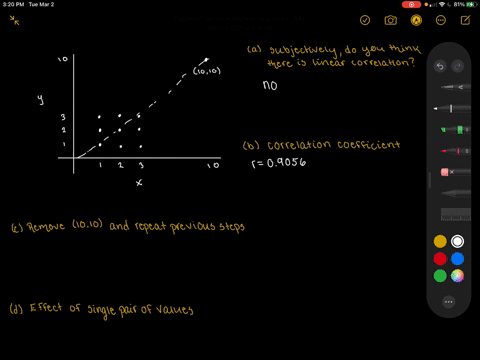 3:20 PM Tue Mar 2
81%
(a) subjectively, do you think
there is linear correlation?
no
10
(10,10)
y
3
2
1
1 2 3 10
x
(b) correlation coefficient
r=0.9056
(c) Remove (10,10) and repeat previous steps
(d) Effect of single pair of values